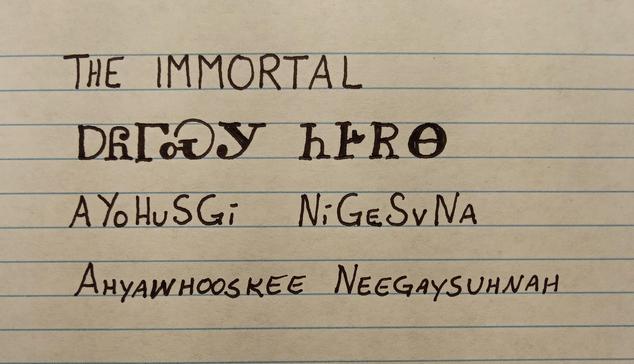 THE IMMORTAL
ᎠᏲᎱᏍᎩ ᏂᎨᏒᎾ
AYoHuSGi NiGeSvNa
AHYAWHOOSKEE NEEGAYSUHNAH